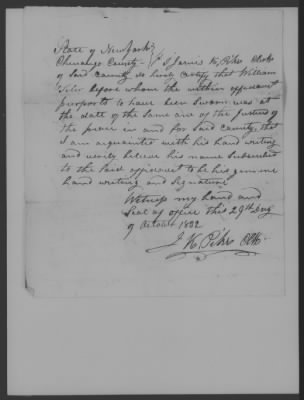 State of New York
Chenango County } I Jarvis K. Pike Clerk
of said County do hereby certify that William
Tyler before whom the within affidavit
purports to have been sworn was at
the date of the same one of the justices of
the peace in and for said county that
I am acquainted with his hand writing
and verily believe his name subscribed
to the said affidavit to be his genuine
hand writing and signature
Witness my hand and
Seal of office this 29th day
of October 1832
J K. Pike Clk.